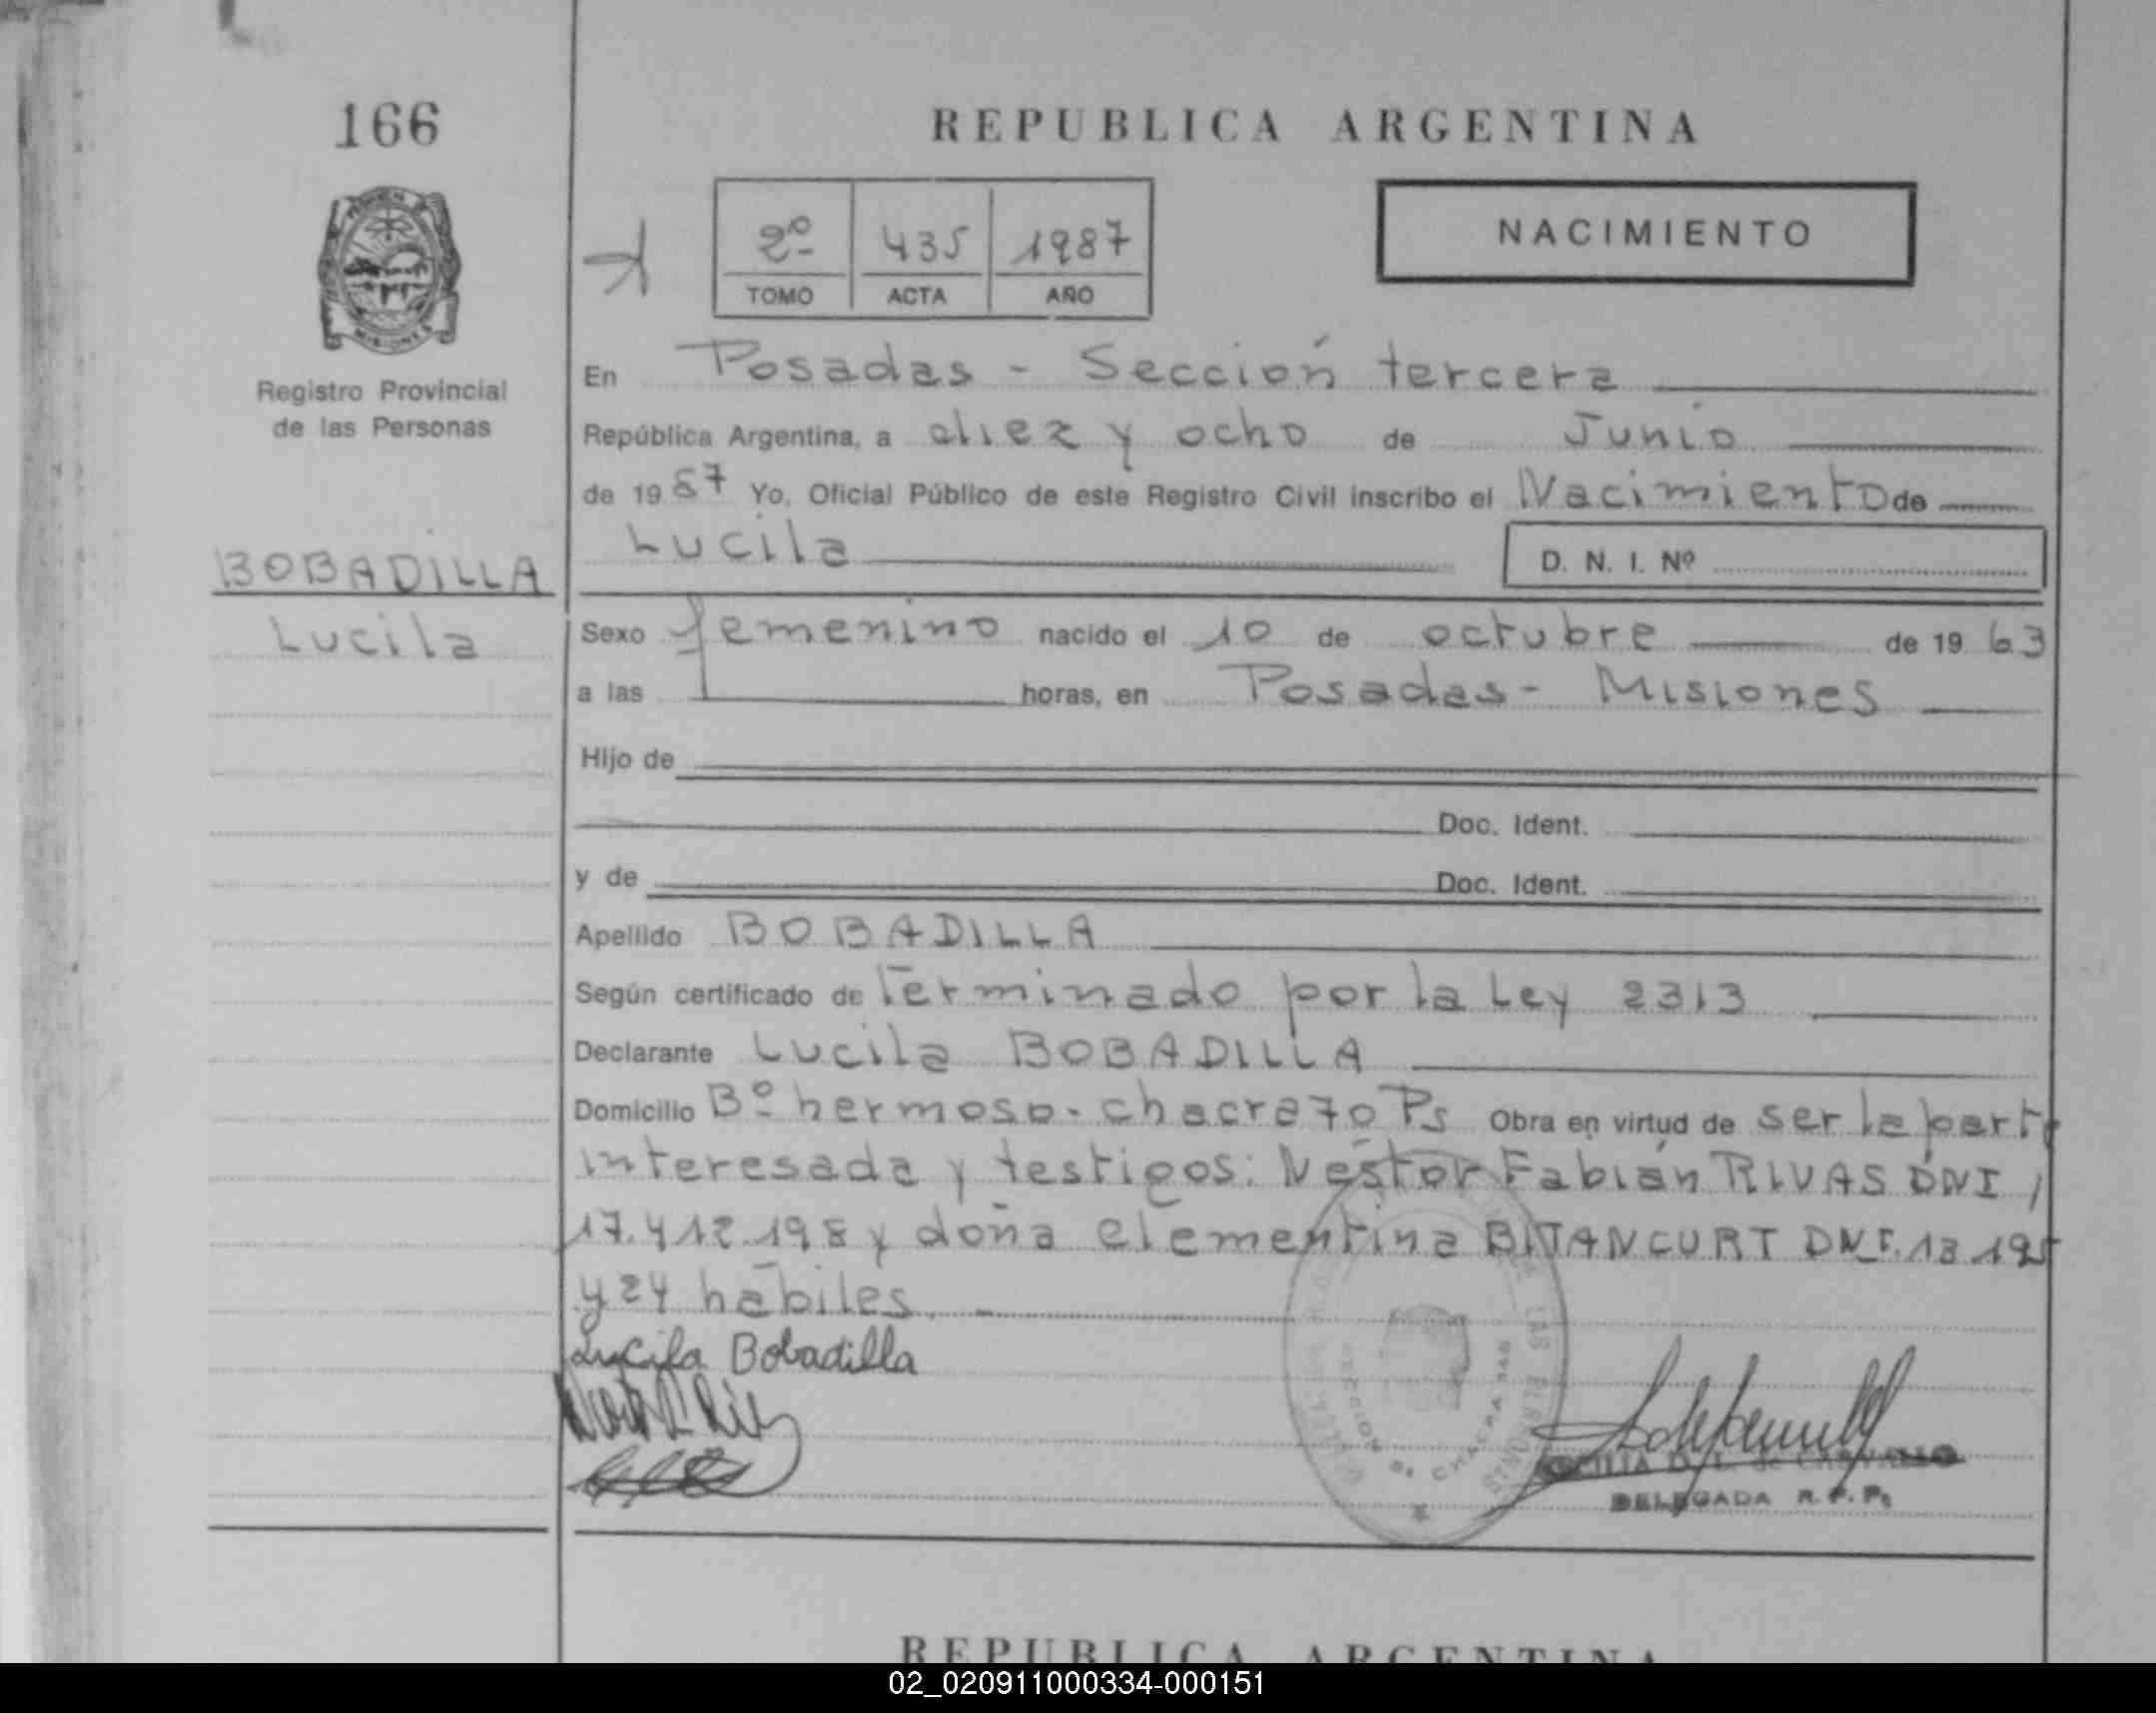 166
REPUBLICA ARGENTINA
2º 435 1987
TOMO ACTA AÑO
NACIMIENTO
Registro Provincial
de las Personas
En Posadas - Sección tercera
República Argentina, a diez y ocho de Junio
de 1987 Yo, Oficial Público de este Registro Civil inscribo el Nacimiento de
Lucila D. N. I. Nº
BOBADILLA
Lucila
Sexo femenino nacido el 10 de octubre de 1963
a las horas, en Posadas - Misiones
Hijo de
Doc. Ident.
y de Doc. Ident.
Apellido BOBADILLA
Según certificado de Terminado por la Ley 2313
Declarante Lucila BOBADILLA
Domicilio Bº hermoso - chacra 70 Ps Obra en virtud de ser la parte
interesada y testigos: Néstor Fabián RIVAS DNI
17.412.198 y doña Clementina BITANCURT DNI. 13.195
424 hábiles. -
Lucila Bobadilla
LAS PERSONAS
DE CHACRA
DELEGADA R. P. P.
REPUBLICA ARGENTINA
02_020911000334-000151